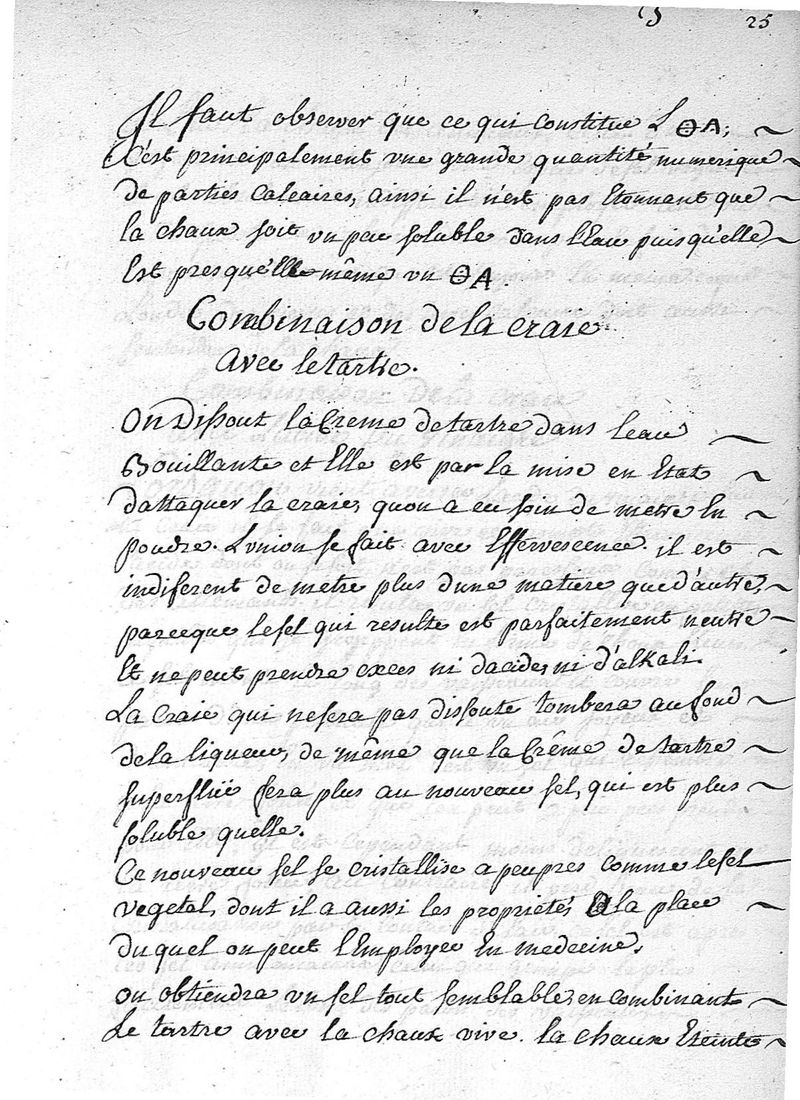 25
Il faut observer que ce qui constitue L ΘA,
C'est principalement vne grande quantité numerique
de parties calcaires, ainsi il n'est pas Etonnant que
la chaux soit vn peu soluble dans l'Eau puisqu'elle
Est presqu'Elle même vn ΘA.
Combinaison de la craie
avec le tartre.
On Dissout la Creme de tartre dans leau
Bouillante et Elle est par la mise en Etat
dattaquer la craie, quon a eu soin de metre En
poudre. Lvnion se fait avec Effervescence. il est
indiferent de metre plus dune matiere que d'autre,
parceque le sel qui resulte est parfaitement neutre
Et ne peut prendre exces ni dacide, ni d'alkali.
La craie qui ne sera pas dissoute tombera au fond
de la liqueur, de même que la Crême de tartre
superfluë sera plus au nouveau sel, qui est plus
soluble quelle.
Ce nouveau sel se cristallise a peu pres comme le sel
vegetal, dont il a aussi les propriétés, a la place
duquel on peut l'Employer En medecine,
on obtiendra vn sel tout semblable, en combinant
Le tartre avec la chaux vive. la chaux Eteinte